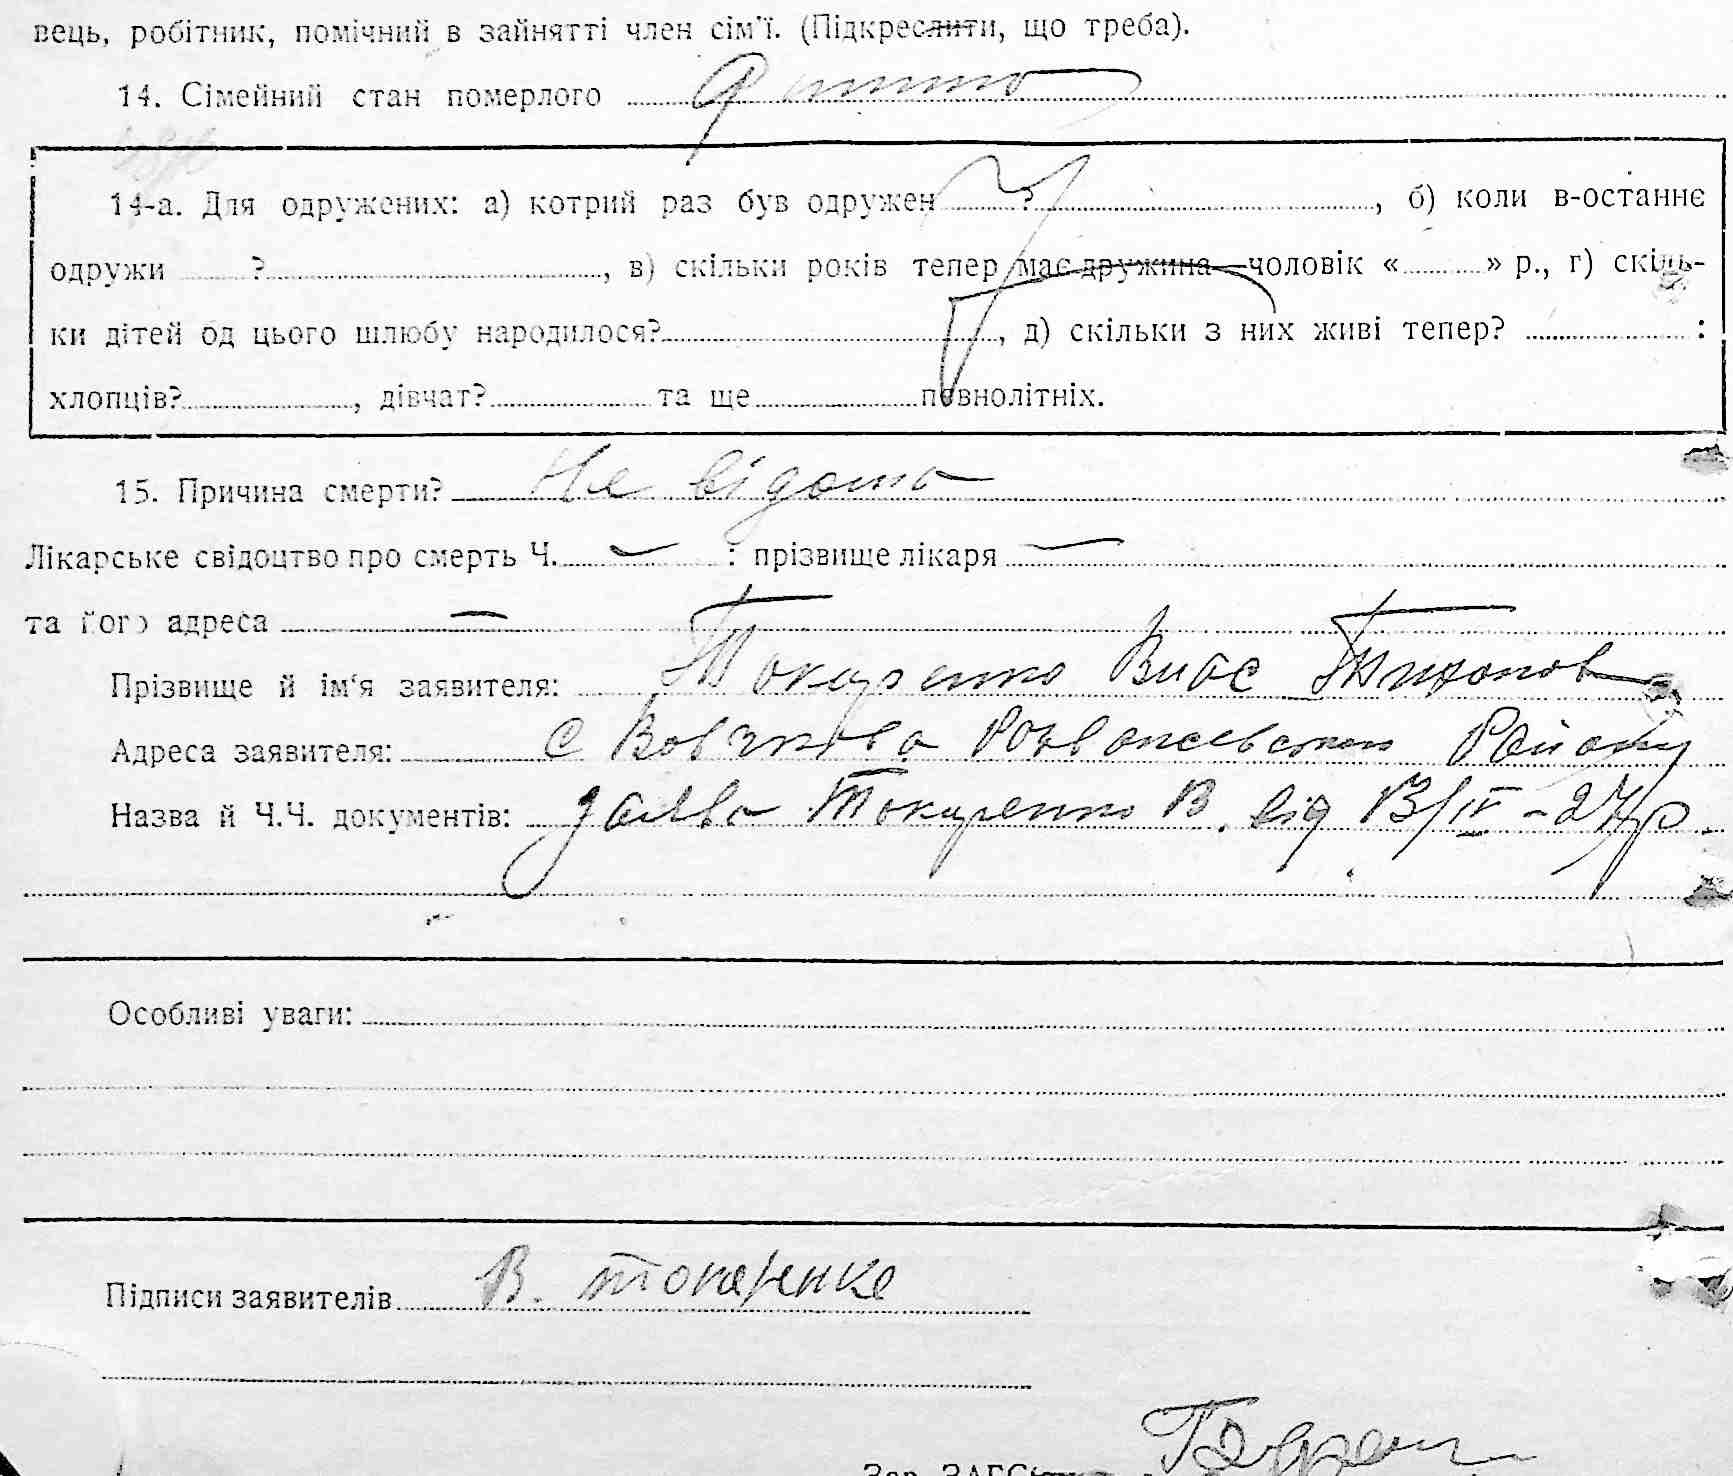 вець, робітник, помічний в зайнятті член сім'ї. (Підкреслити, що треба).
14. Сімейний стан померлого
14-а. Для одружених: а) котрий раз був одружен ?, б) коли в-останнє
одружи ?, в) скільки років тепер має дружина—чоловік « » р., г) скіль-
ки дітей од цього шлюбу народилося?, д) скільки з них живі тепер? :
хлопців?, дівчат? та ще повнолітніх.
15. Причина смерти? Не відома
Лікарське свідоцтво про смерть Ч. — : прізвище лікаря —
та його адреса —
Прізвище й ім'я заявителя: Токаренко Влас Тихонов
Адреса заявителя: с Вовчкова Району
Назва й Ч.Ч. документів: заява Токаренко В. від 13/IV - 27 р.
Особливі уваги:
Підписи заявителів В. токаренко
Зав. ЗАГС